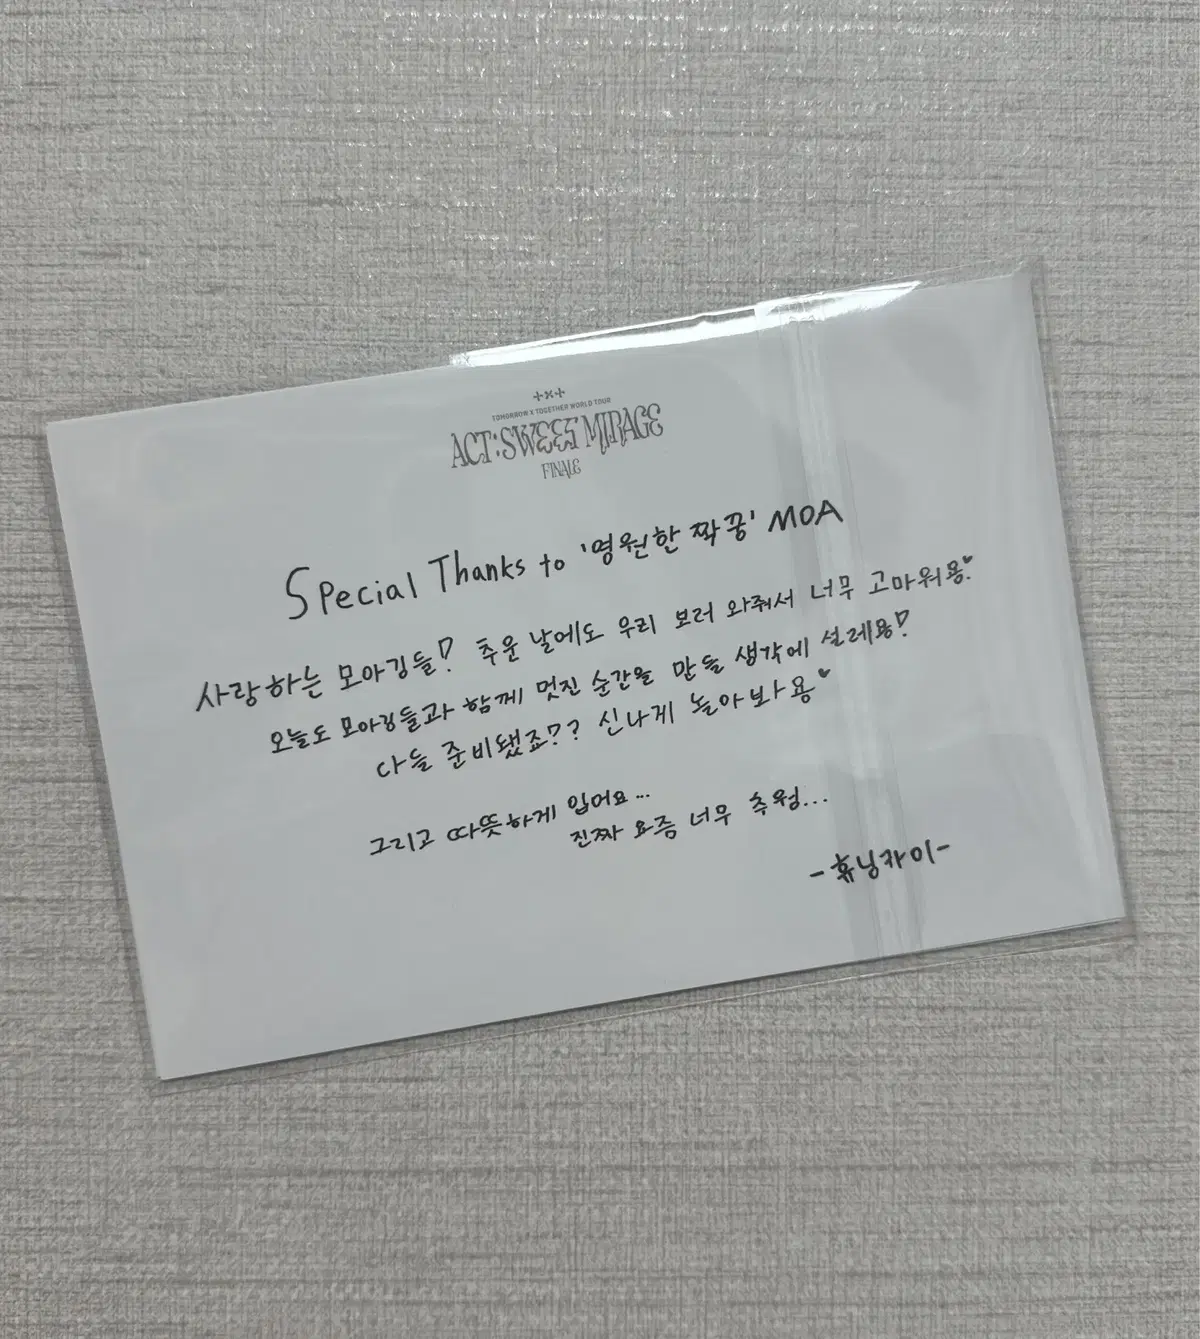 +×+
TOMORROW X TOGETHER WORLD TOUR
ACT : SWEET MIRAGE
FINALE
Special Thanks to '영원한 짝꿍' MOA
사랑하는 모아깅들! 추운 날에도 우리 보러 와줘서 너무 고마워용♥
오늘도 모아깅들과 함께 멋진 순간을 만들 생각에 설레용!
다들 준비됐죠?? 신나게 놀아보아용♥
그리고 따뜻하게 입어요...
진짜 요즘 너무 추웡...
-휴닝카이-